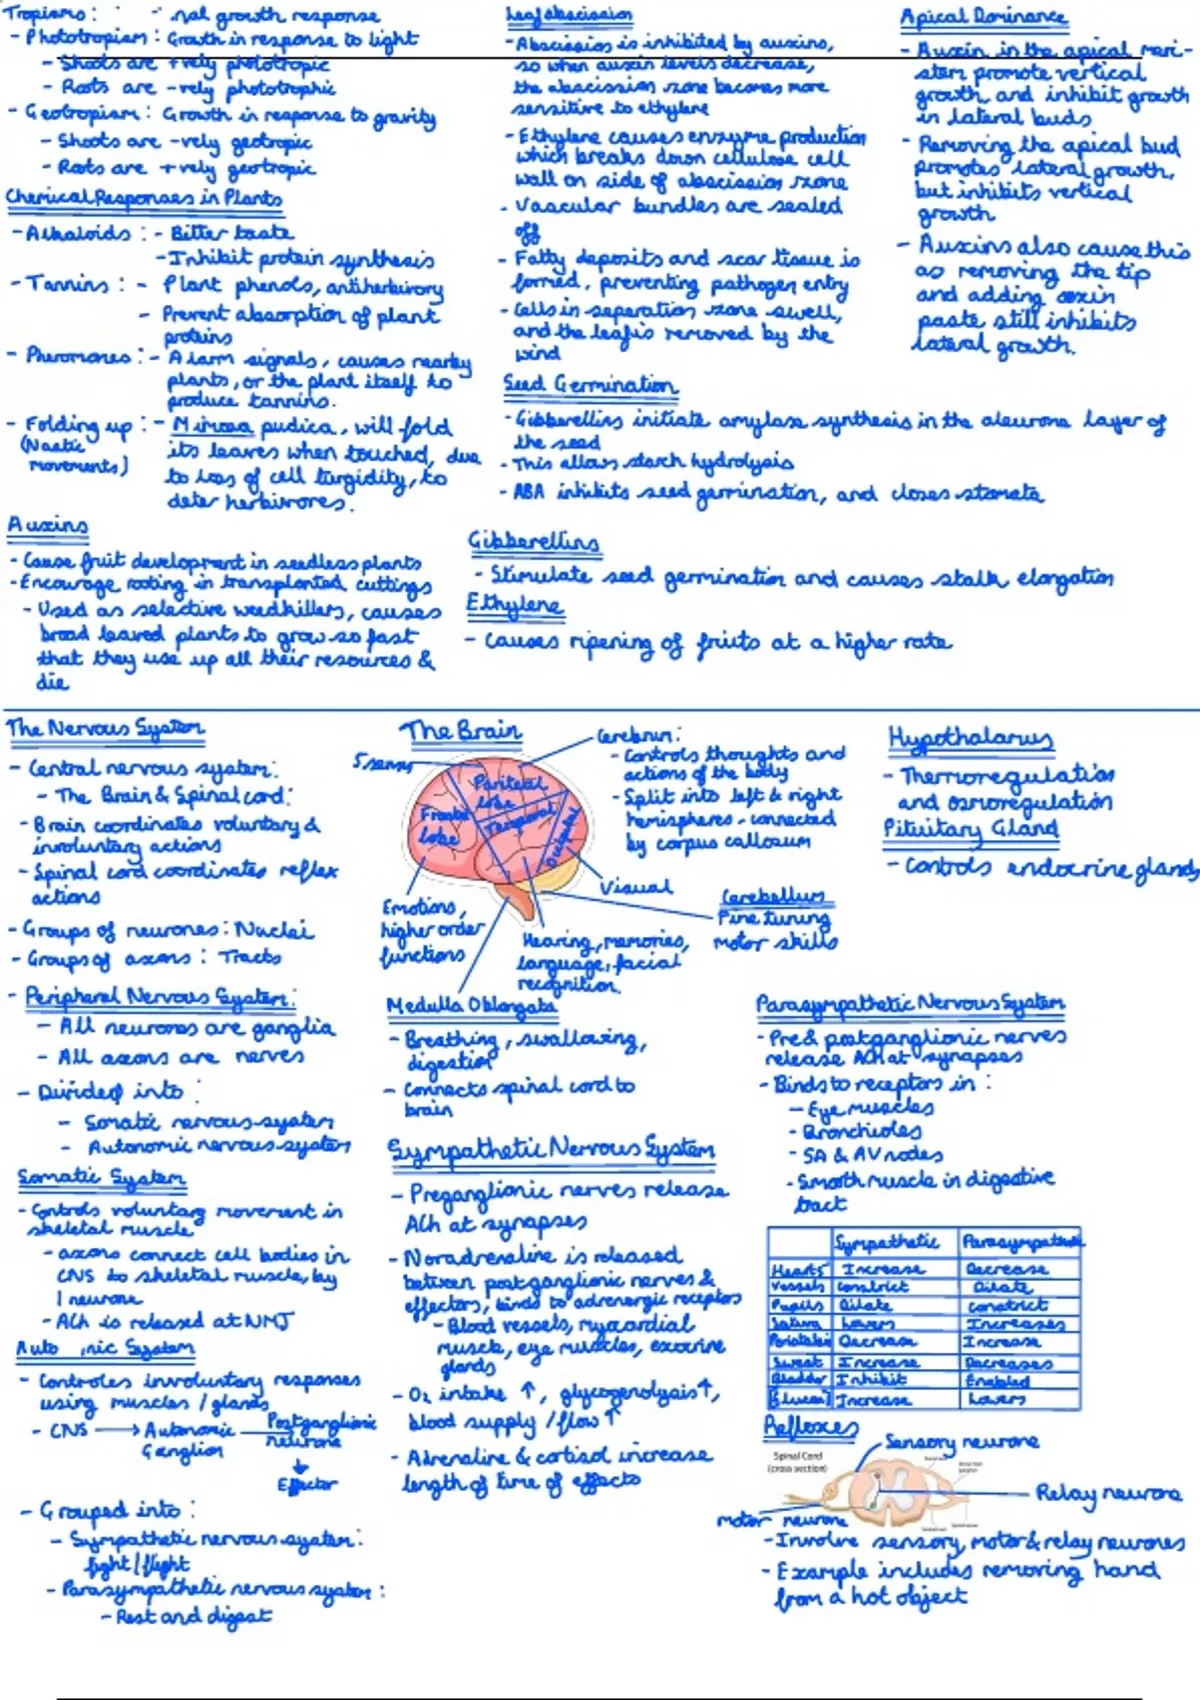 Tropisms: nal growth response
- Phototropism: Growth in response to light
- Shoots are +vely phototropic
- Roots are -vely phototrophic
- Geotropism: Growth in response to gravity
- Shoots are -vely geotropic
- Roots are +vely geotropic
Chemical Responses in Plants
- Alkaloids: - Bitter taste
- Inhibit protein synthesis
- Tannins: - Plant phenols, antiherbivory
- Prevent absorption of plant
proteins
- Pheromones: - Alarm signals, causes nearby
plants, or the plant itself to
produce tannins.
- Folding up: - Mimosa pudica, will fold
(Nastic its leaves when touched, due
movements) to loss of cell turgidity, to
deter herbivores.
Auxins
- Cause fruit development in seedless plants
- Encourage rooting in transplanted cuttings
- Used as selective weedkillers, causes
broad leaved plants to grow so fast
that they use up all their resources &
die
Leaf abscission
- Abscission is inhibited by auxins,
so when auxin levels decrease,
the abscission zone becomes more
sensitive to ethylene
- Ethylene causes enzyme production
which breaks down cellulose cell
wall on side of abscission zone
- Vascular bundles are sealed
off
- Fatty deposits and scar tissue is
formed, preventing pathogen entry
- Cells in seperation zone swell,
and the leaf is removed by the
wind
Apical Dominance
- Auxin in the apical meri-
stem promote vertical
growth and inhibit growth
in lateral buds
- Removing the apical bud
promotes lateral growth,
but inhibits vertical
growth
- Auxins also cause this
as removing the tip
and adding auxin
paste still inhibits
lateral growth.
Seed Germination
- Gibberellins initiate amylase synthesis in the aleurone layer of
the seed
- This allows starch hydrolysis
- ABA inhibits seed germination, and closes stomata
Gibberellins
- Stimulate seed germination and causes stalk elongation
Ethylene
- Causes ripening of fruits at a higher rate
The Nervous System
- Central nervous system:
- The Brain & Spinal cord:
- Brain coordinates voluntary &
involuntary actions
- Spinal cord coordinates reflex
actions
- Groups of neurones: Nuclei
- Groups of axons: Tracts
- Peripheral Nervous System:
- All neurones are ganglia
- All axons are nerves
- Divided into:
- Somatic nervous system
- Autonomic nervous system
Somatic System
- Controls voluntary movement in
skeletal muscle
- axons connect cell bodies in
CNS to skeletal muscle, by
1 neurone
- ACh is released at NMJ
Auto nic System
- Controles involuntary responses
using muscles / glands
- CNS → Autonomic Ganglion — Postganglionic neurone
↓
Effector
- Grouped into:
- Sympathetic nervous system:
fight / flight
- Parasympathetic nervous system:
- Rest and digest
The Brain
5 senses
Parietal
lobe
Frontal
lobe
Temporal
Occipital
Cerebrum:
- Controls thoughts and
actions of the body
- Split into left & right
hemispheres - connected
by corpus callosum
Visual
Cerebellum
Fine tuning
motor skills
Emotions,
higher order
functions
Hearing, memories,
language, facial
recognition.
Medulla Oblongata
- Breathing, swallowing,
digestion
- Connects spinal cord to
brain
Sympathetic Nervous System
- Preganglionic nerves release
ACh at synapses
- Noradrenaline is released
between postganglionic nerves &
effectors, binds to adrenergic receptors
- Blood vessels, myocardial
muscle, eye muscles, exocrine
glands
- O₂ intake ↑, glycogenolysis ↑,
blood supply / flow ↑
- Adrenaline & cortisol increase
length of time of effects
Hypothalamus
- Thermoregulation
and osmoregulation
Pituitary Gland
- Controls endocrine glands
Parasympathetic Nervous System
- Pre & postganglionic nerves
release ACh at synapses
- Binds to receptors in:
- Eye muscles
- Bronchioles
- SA & AV nodes
- Smooth muscle in digestive
tract
Sympathetic Parasympath
Hearts Increase Decrease
Vessels Constrict Dilate
Pupils Dilate Constrict
Saliva Lowers Increases
Peristalsis Decrease Increase
Sweat Increase Decreases
Bladder Inhibit Enabled
[Glucose] Increase Lowers
Reflexes
Spinal Cord
(cross section)
Sensory neurone
Relay neurone
motor neurone
- Involve sensory, motor & relay neurones
- Example includes removing hand
from a hot object